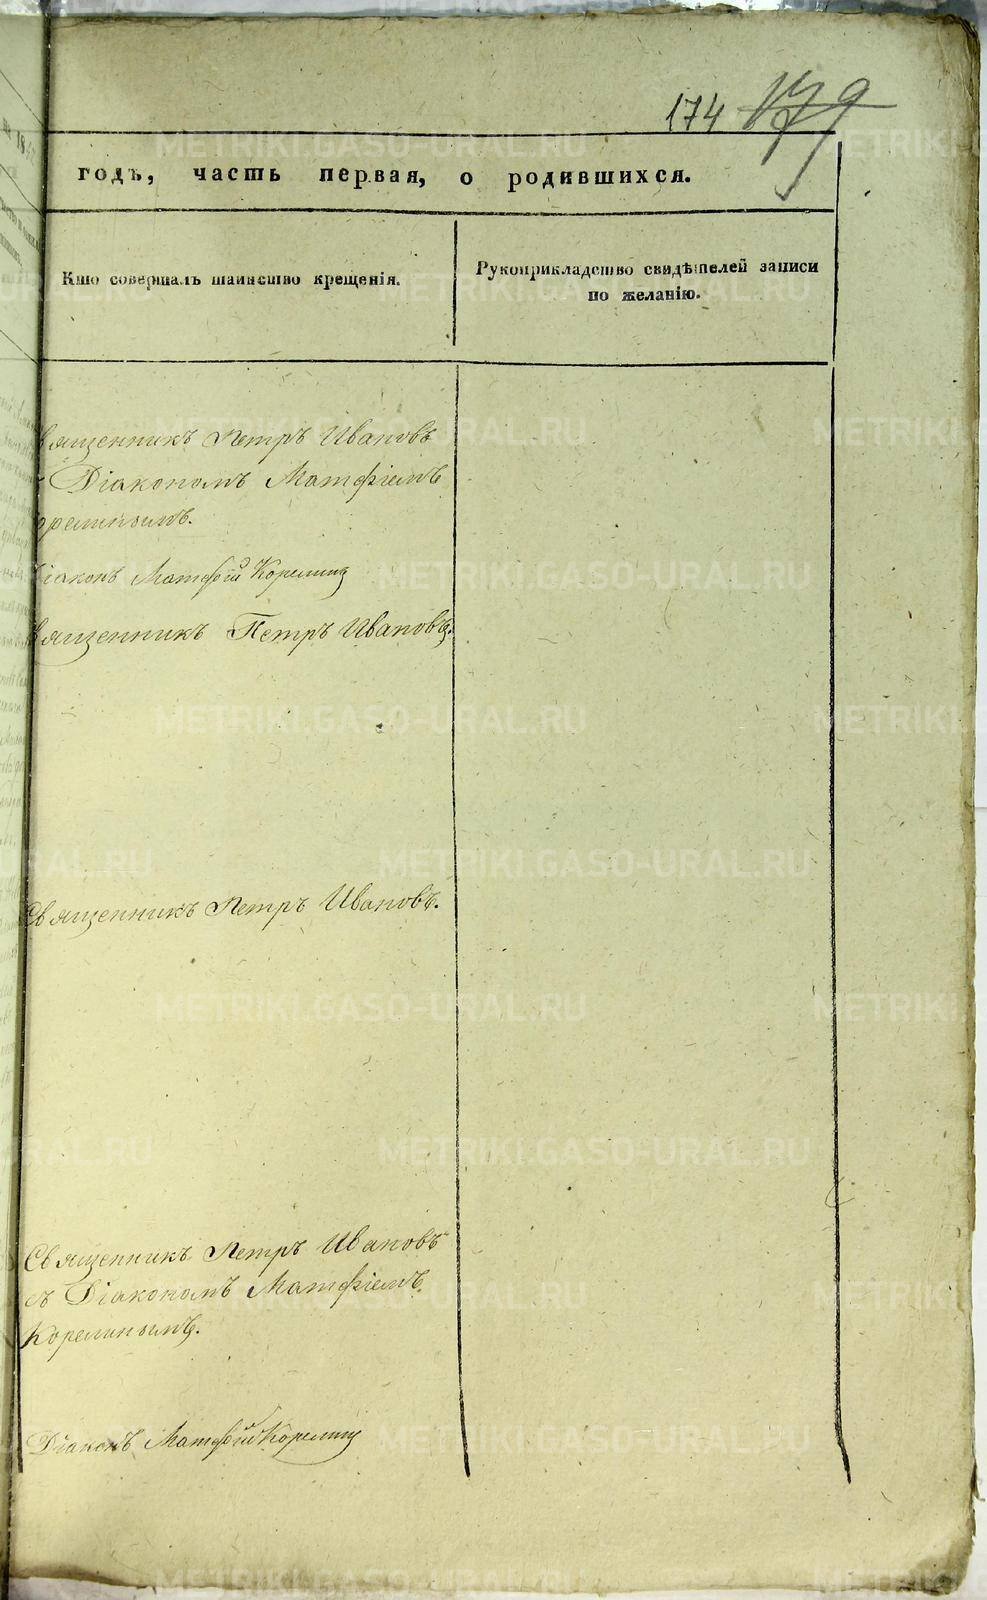 174 179
годъ, часть первая, о родившихся.
Кто совершалъ таинство крещенія.
Рукоприкладство свидѣтелей записи
по желанію.
вященникъ Петръ Ивановъ
Діакономъ Матфіемъ
орелинымъ.
Діаконъ Матфѣй Корелинъ
вященникъ Петръ Ивановъ.
Священникъ Петръ Ивановъ.
Священникъ Петръ Ивановъ
съ Діакономъ Матфіемъ
Корелинымъ.
Діаконъ Матфѣй Корелинъ
METRIKI.GASO-URAL.RU